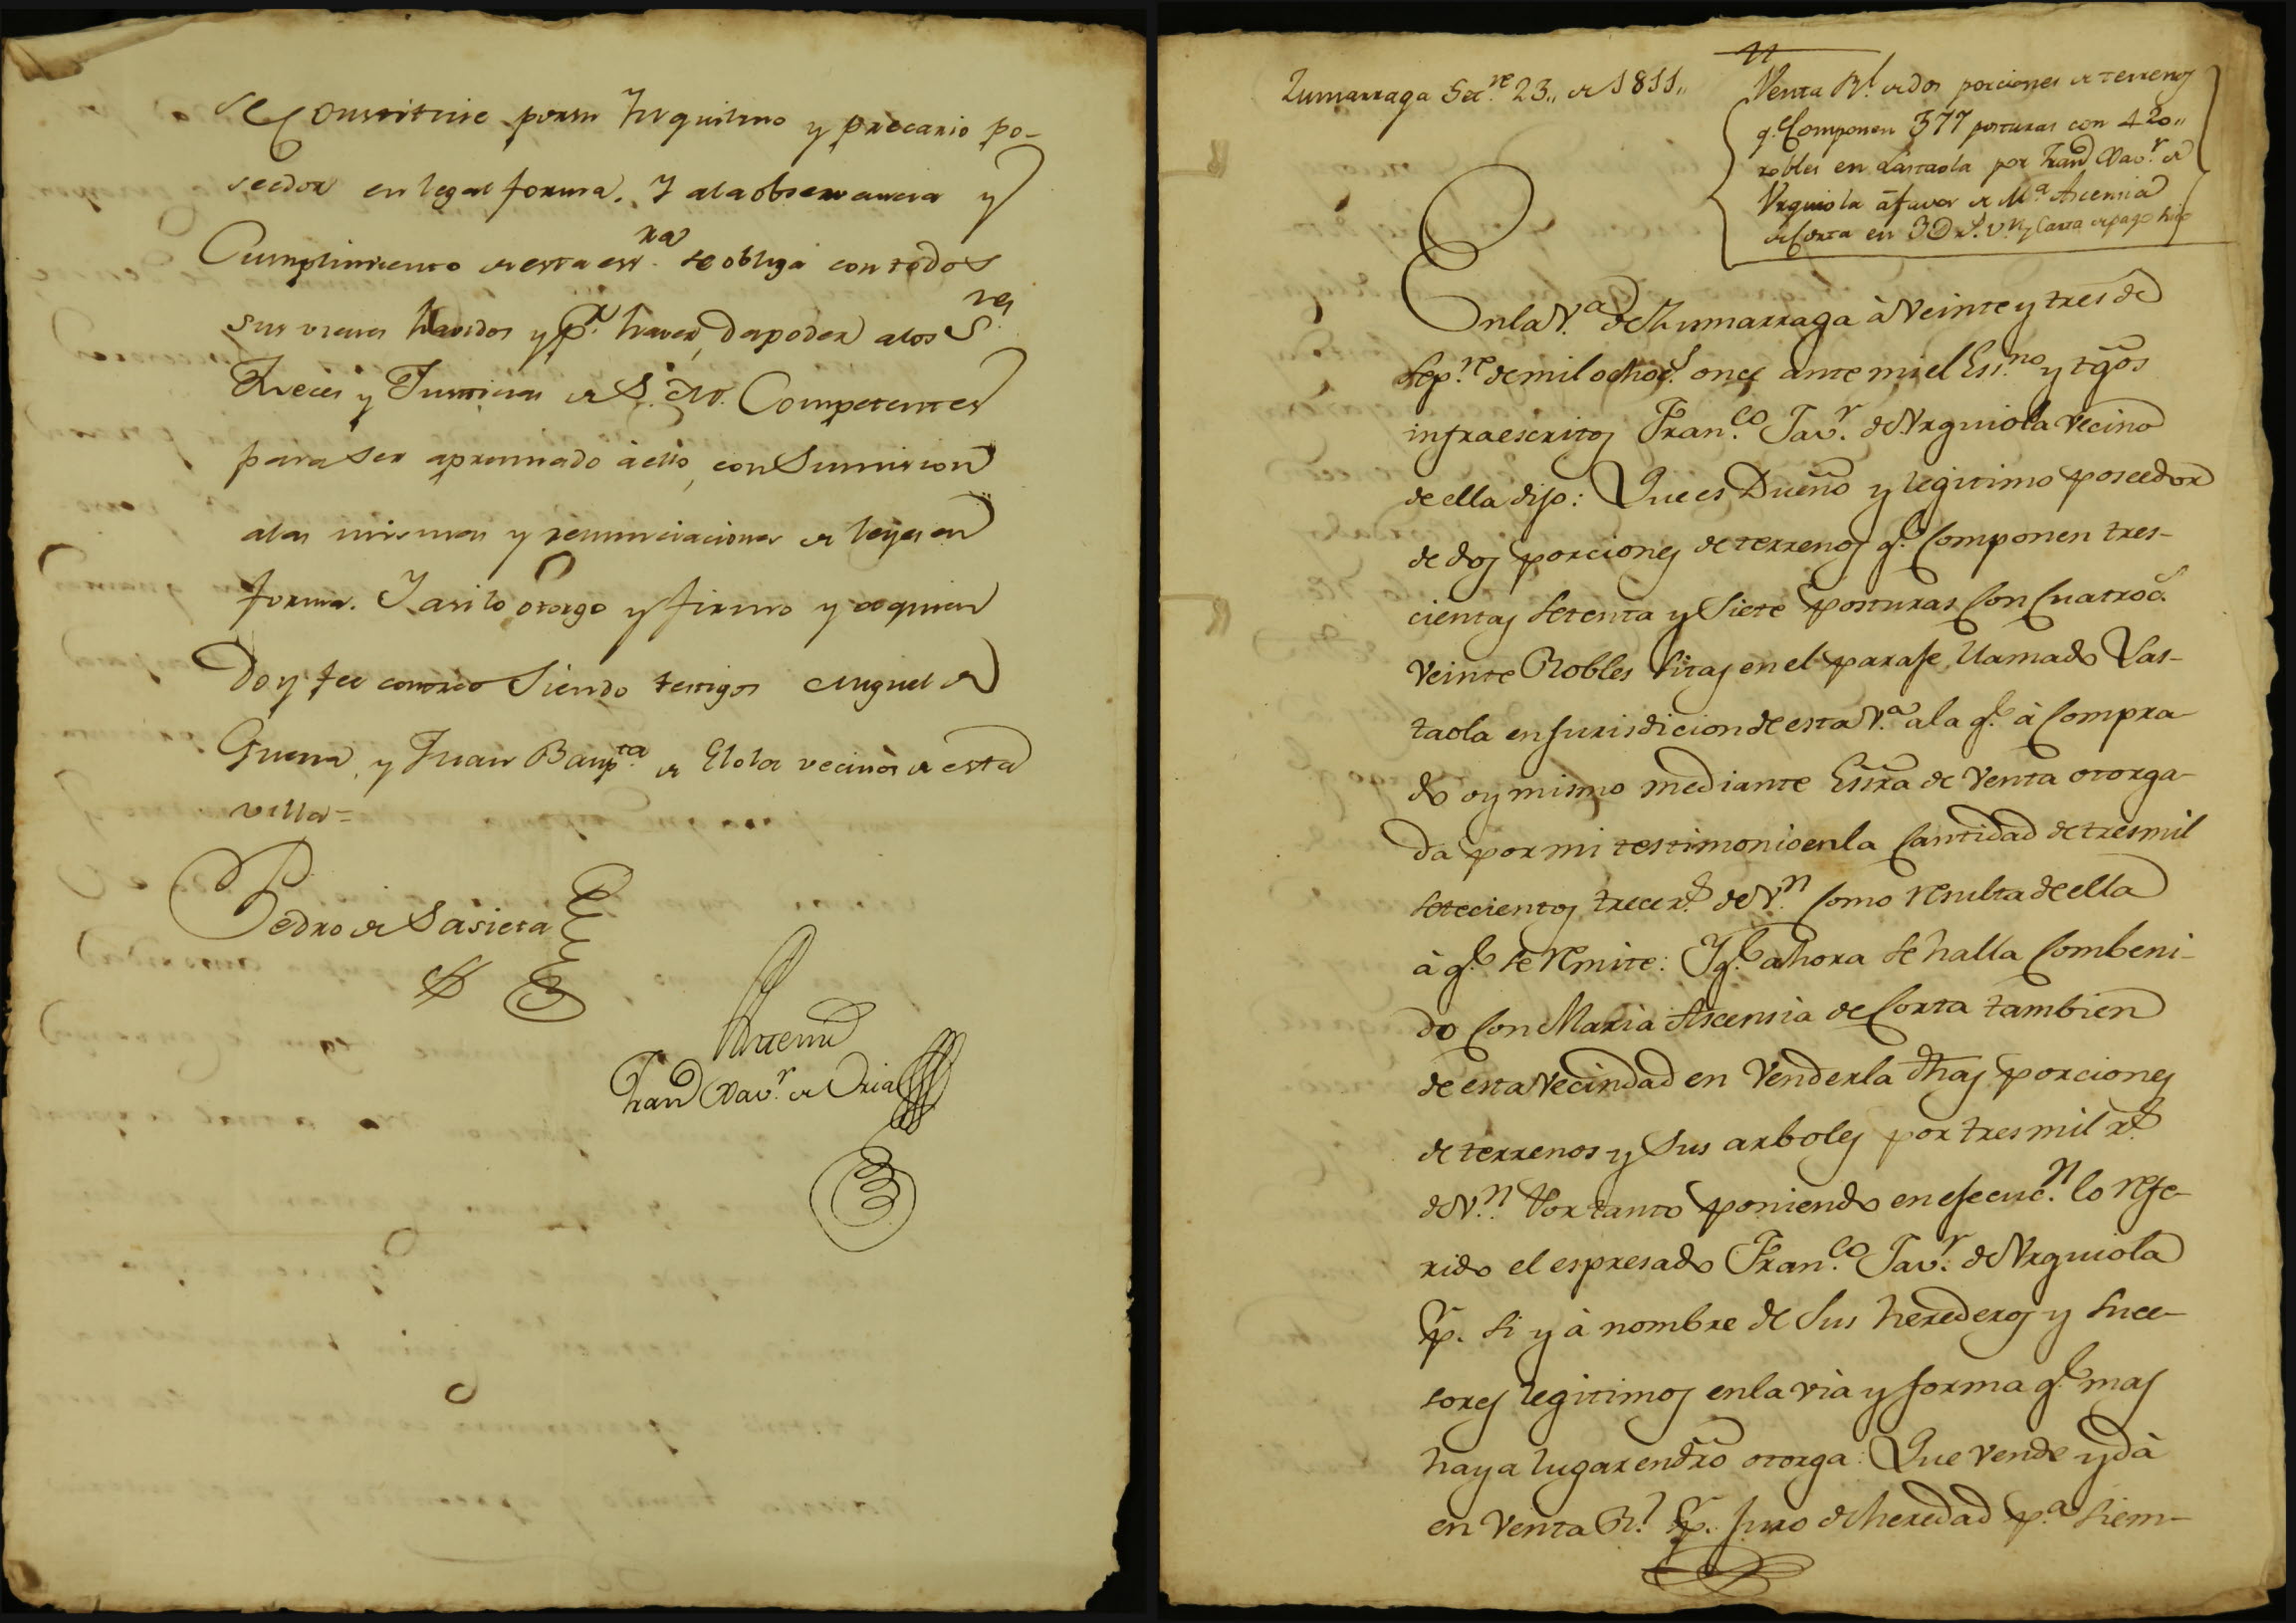 se Constituie por su Inquilino y precario po-
seedor en legal forma. Y ala observancia y
Cumplimiento de esta ess.ra se obliga con todos
sus vienes havidos y p.r haver, da poder alos S.res
Jueces y Justicias de S. M. Competentes
para ser apremiado à ello, con Sumision
alas mismas y renunciaciones de leyes en
forma. Y asi lo otorgo y firmo y a quien
Doy fee conozco Siendo testigos Miguel de
Guerra, y Juan Baup.ta de Elola vecinos de esta
villa =
Pedro de Sasieta
Antemi
Fran.co Xav.r de Oria
Zumarraga Set.re 23,, de 1811,,
11
Venta R.l de dos porciones de terrenos
q.e Componen 377 posturas con 420,,
robles en Lastaola por Fran.co Xav.r de
Urquiola à favor de M.a Ascensia
de Corta en 3D r.s v.n y Carta de pago
En la V.a de Zumarraga à Veinte y tres de
Sep.re de mil ochoc.s once ante mi el Ess.no y tg̃os
infraescritos Fran.co Jav.r de Urquiola Vecino
de ella dijo: Que es Dueño y legitimo poseedor
de dos porciones de terrenos q.e Componen tres-
cientas Setenta y Siete posturas Con Cuatroc.s
Veinte Robles sitas en el paraje llamado Las-
taola en jurisdicion de esta V.a a la q.e à Compra-
do oy mismo mediante Essr̃a de Venta otorga-
da por mi testimonio en la Cantidad de tres mil
setecientos trece r.s de V.n Como resulta de ella
à q.e se remite: Y q.e ahora se halla Combeni-
do Con Maria Ascensia de Corta tambien
de esta Vecindad en Venderla dh̃as porciones
de terrenos y Sus arboles por tres mil r.s
de V.n Por tanto poniendo en ejecuc.n lo refe-
rido el espresado Fran.co Jav.r de Urquiola
p.r Si y à nombre de Sus herederos y Suce-
sores legitimos en la via y forma q.e mas
haya lugar en dr̃o otorga: Que Vende y dà
en Venta R.l p.r juro de heredad p.a Siem-